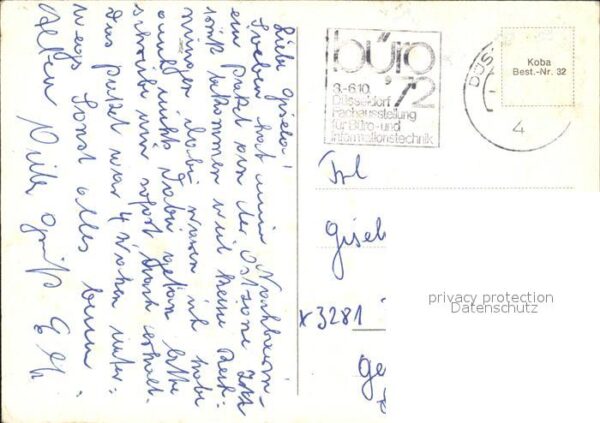 Liebe Gisela!
Soeben hat mein Nachbarin
ein Paket von der Ostzone zu-
rück bekommen weil keine Rech-
nungen dabei waren ich habe
auch nichts dabei getan bitte
schreibe mir sofort nach erhalt.
Das Paket war 4 Wochen unter-
wegs Sonst alles beim
alten Viele Grüße Elli
büro '72
3.-6.10.
Düsseldorf
Fachausstellung
für Büro- und
Informationstechnik
DÜS
4
Koba
Best.-Nr. 32
Frl
Gisel
x3281
Ge
privacy protection
Datenschutz